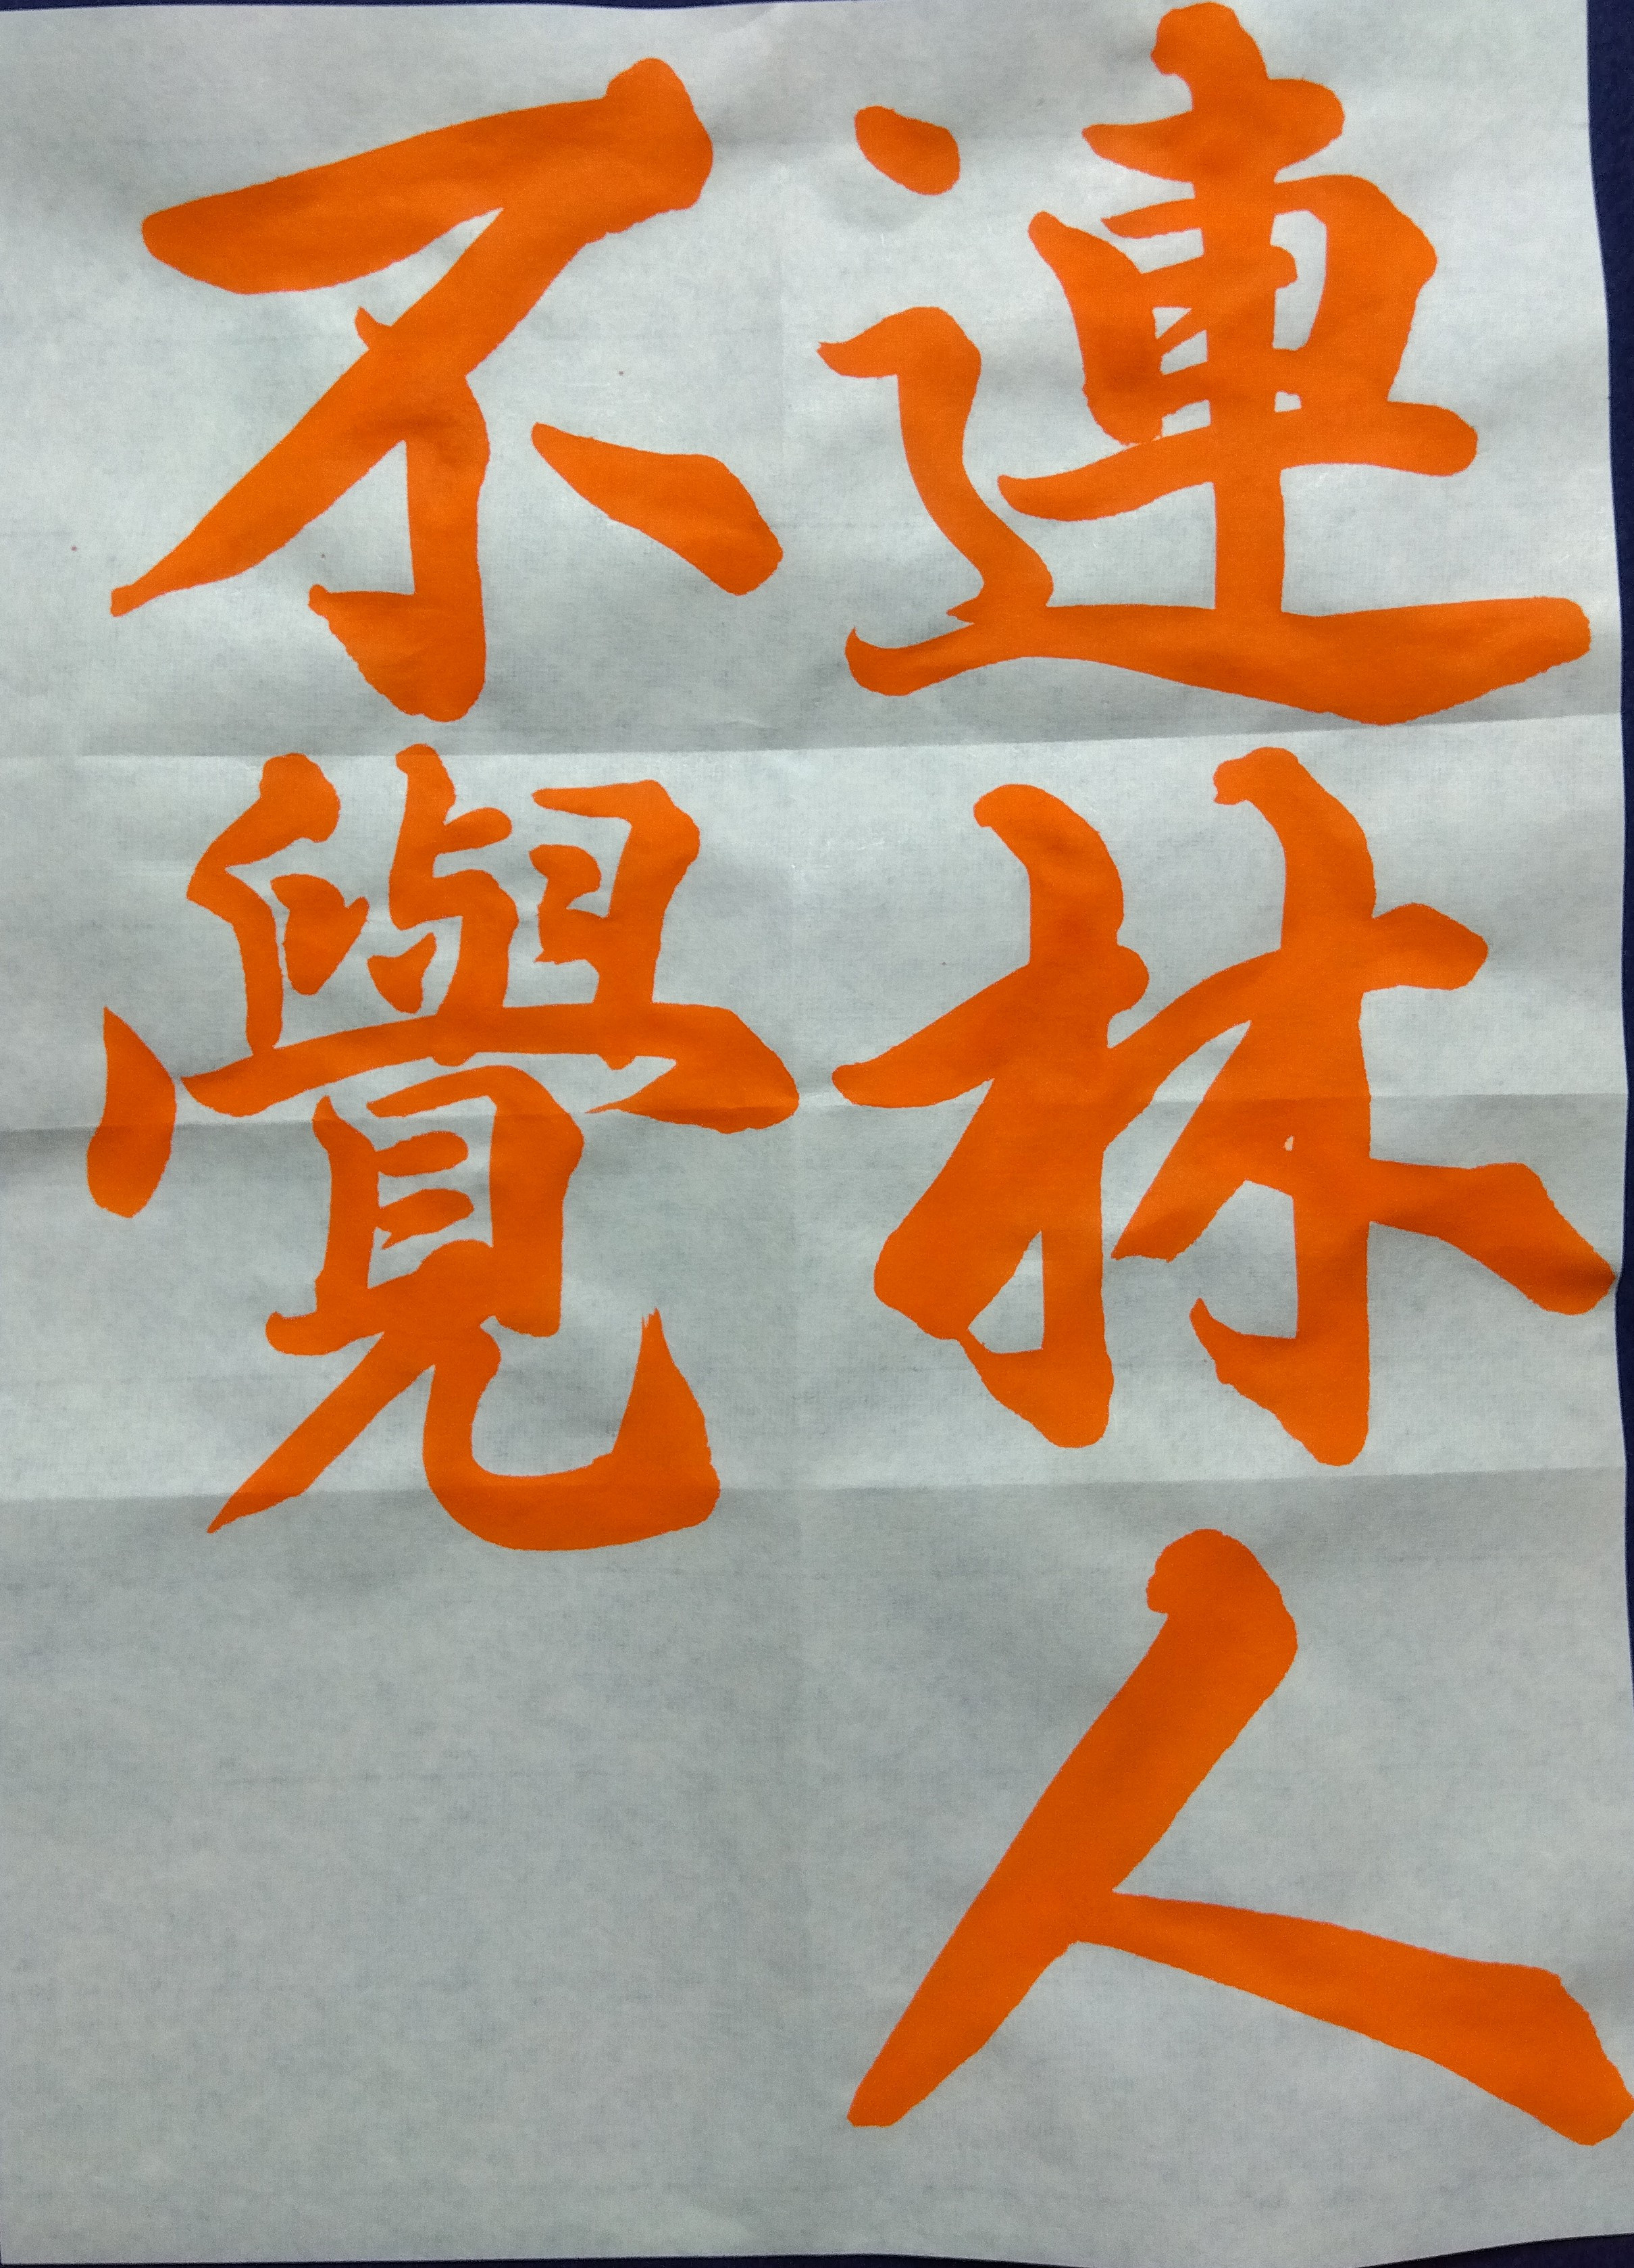 連林人
不覺